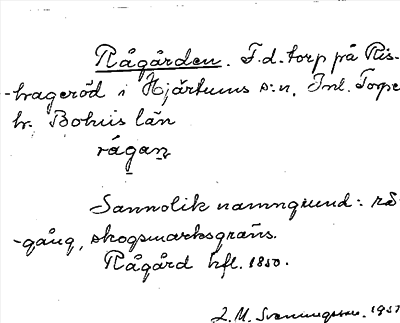 Rågården. F.d. torp på Ris-
-hageröd i Hjärtums s:n, Inl. Torpe
hr. Bohus län
rågaṉ
Sannolik namngrund: rå-
-gång, skogsmarksgräns.
Rågård hfl. 1850.
L. M. Svenungsson. 1957